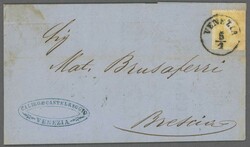 VENEZIA
5/2
Sig
Mat. Brusaferri
VENEZIA
Brescia